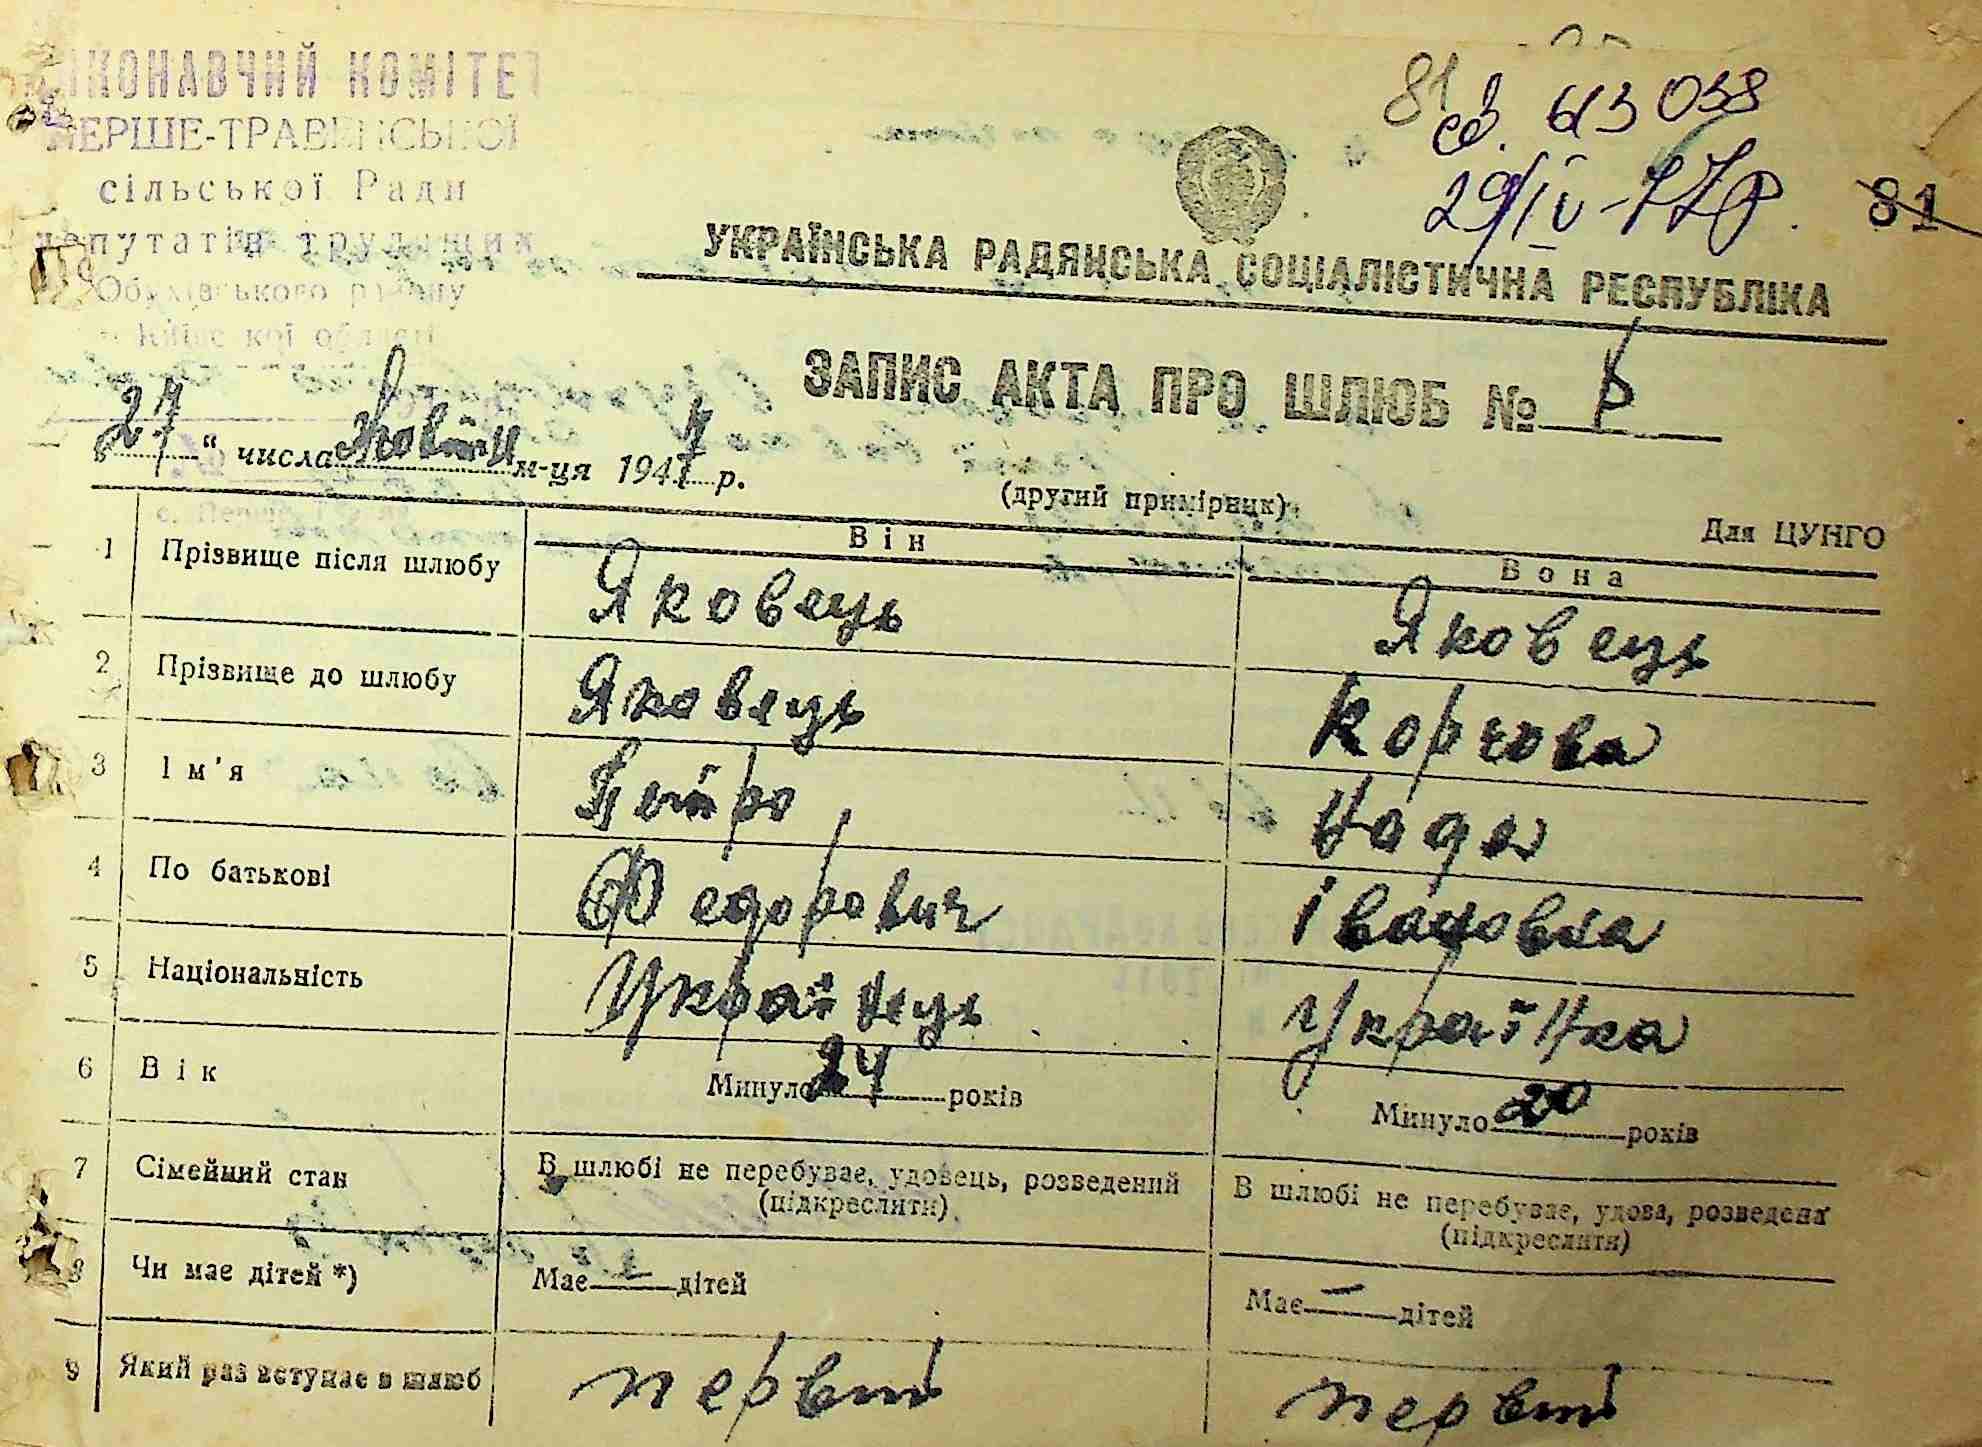 ВИКОНАВЧИЙ КОМІТЕТ
ПЕРШЕ-ТРАВЕНСЬКОЇ
сільської Ради
депутатів трудящих
Обухівського району
Київської області
81
св. 613038
29/IV-77р.
81
УКРАЇНСЬКА РАДЯНСЬКА СОЦІАЛІСТИЧНА РЕСПУБЛІКА
ЗАПИС АКТА ПРО ШЛЮБ №
„27“ числа м-ця 1947 р.
(другий примірник)
Для ЦУНГО
Він Вона
1 Прізвище після шлюбу Яковець Яковець
2 Прізвище до шлюбу Яковець Корчова
3 Ім'я Петро Надя
4 По батькові Федорович Івановна
5 Національність Українець Українка
6 Вік Минуло 24 років Минуло 20 років
7 Сімейний стан В шлюбі не перебуває, удовець, розведений (підкреслити) В шлюбі не перебуває, удова, розведена (підкреслити)
8 Чи має дітей *) Має — дітей Має — дітей
9 Який раз вступає в шлюб первий первий